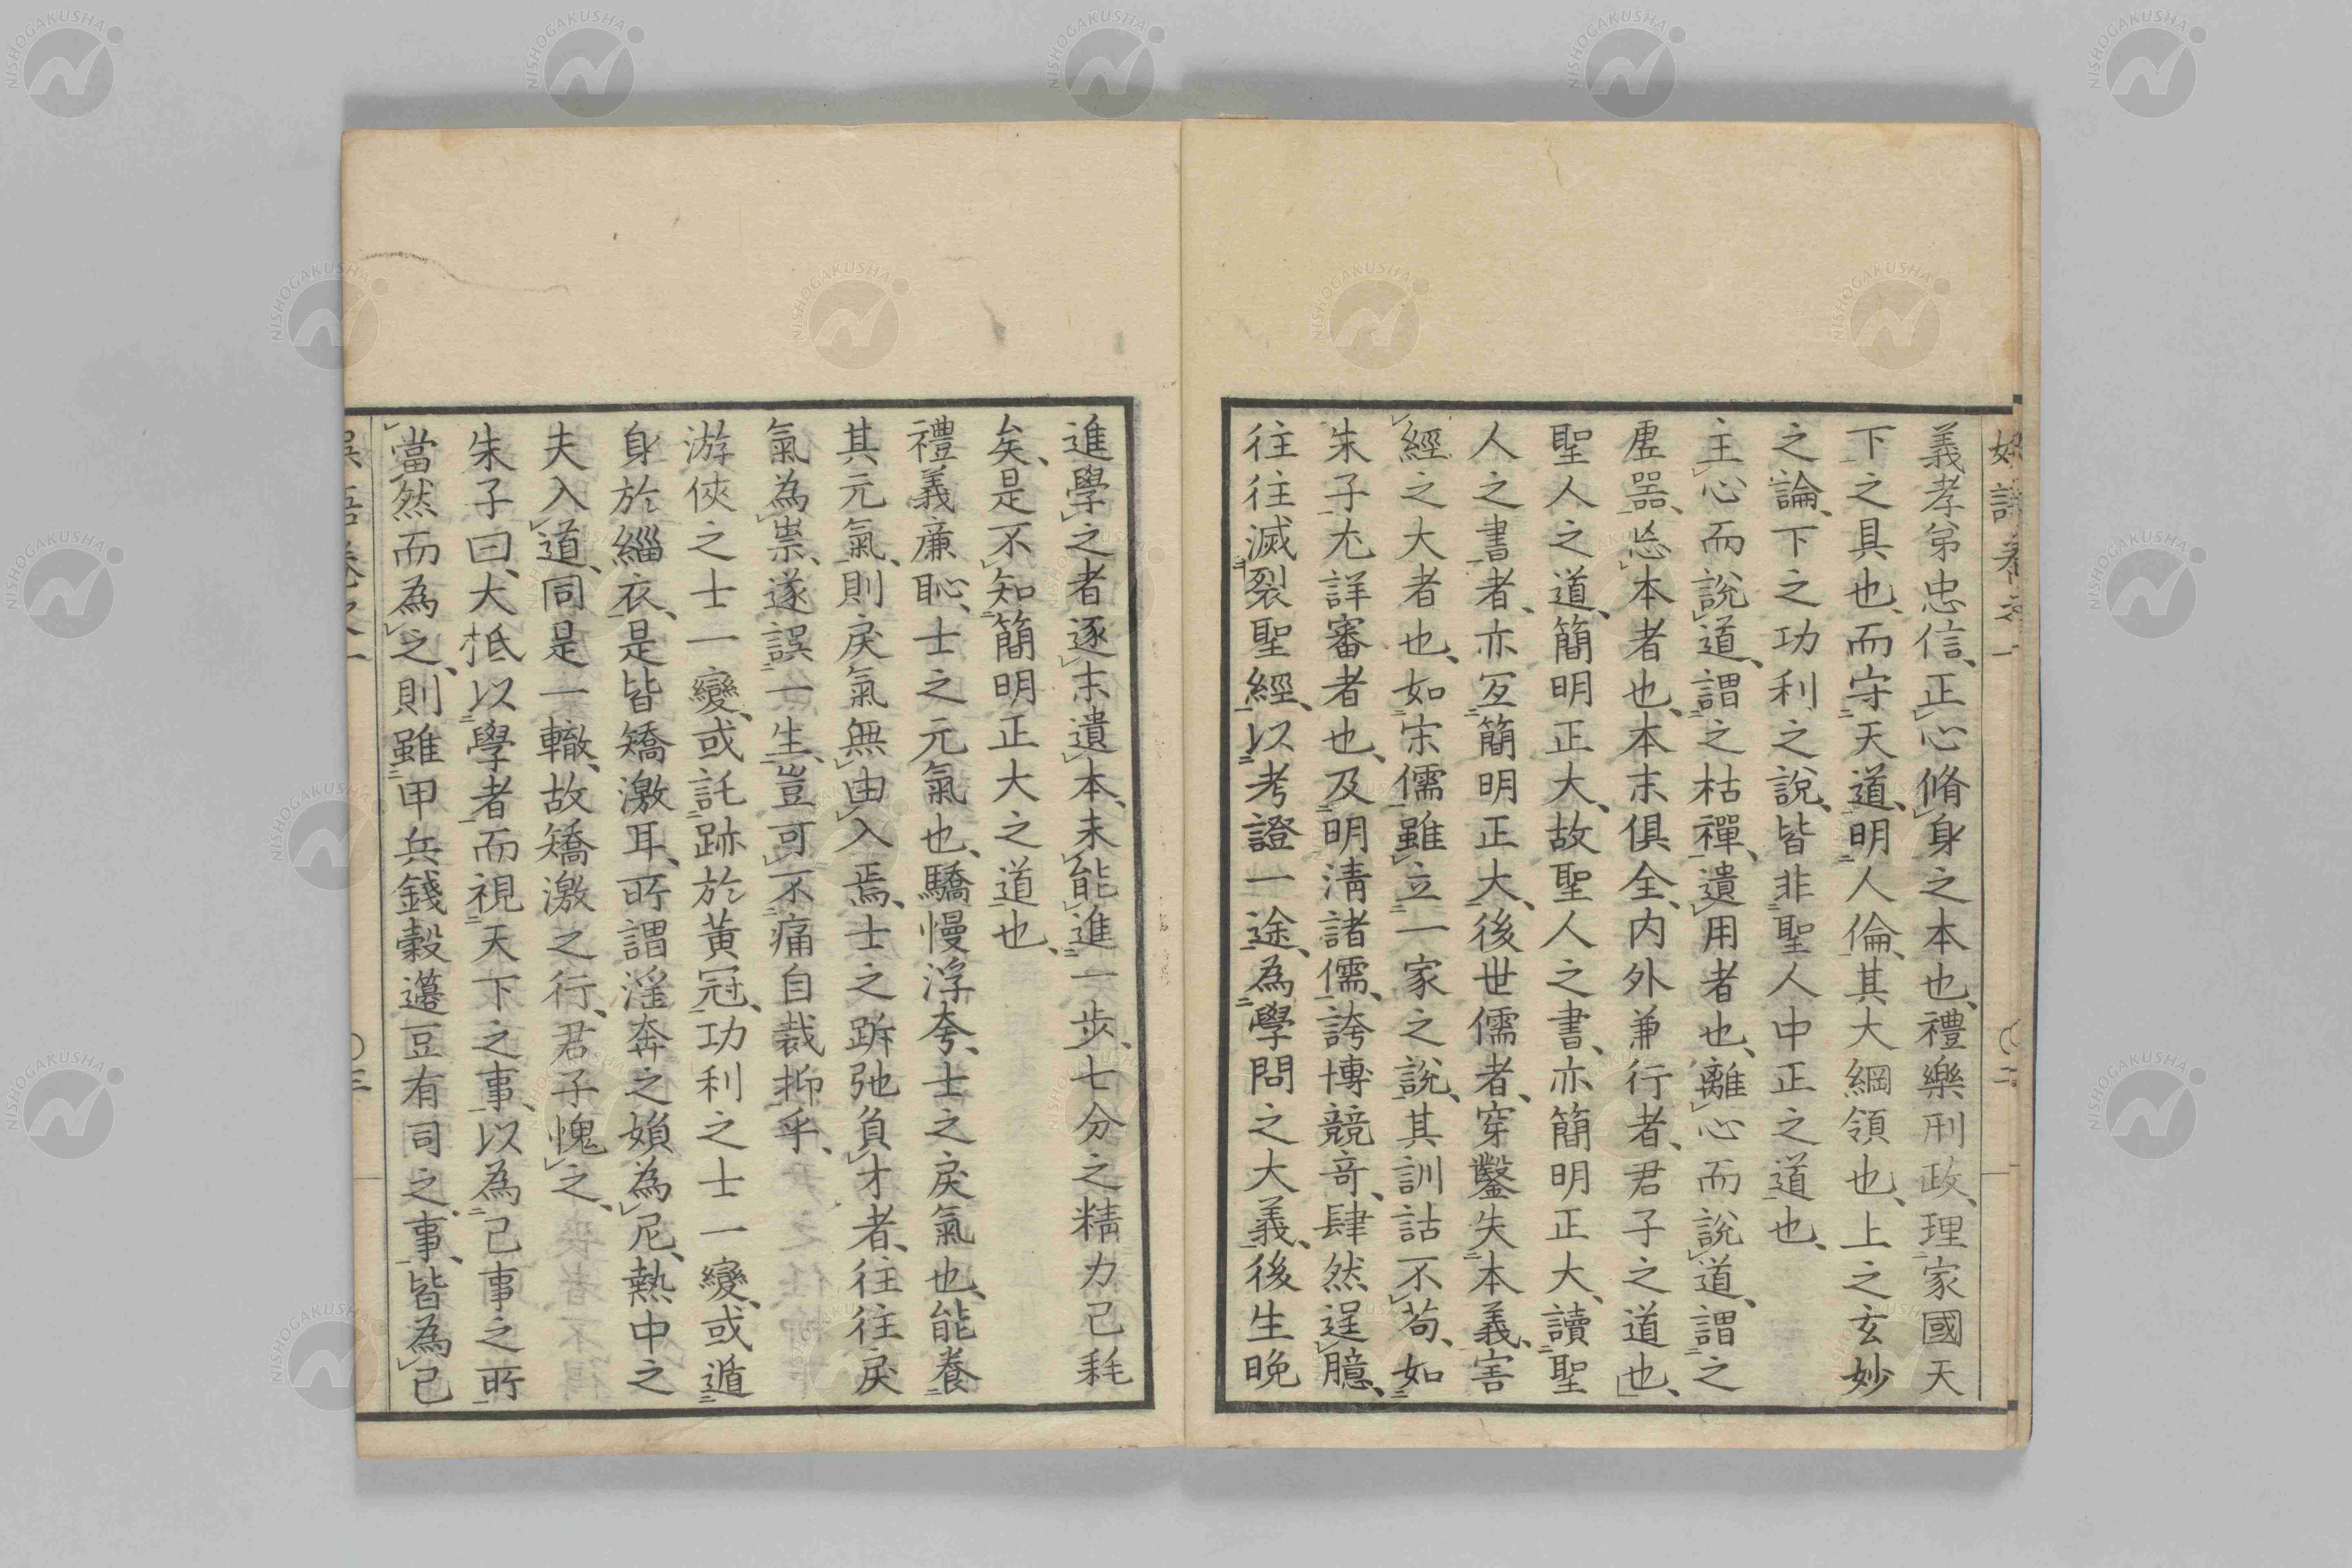 義孝弟忠信、正心脩身之本也、禮樂刑政、理家國天
下之具也、而守天道、明人倫、其大綱領也、上之玄妙
之論、下之功利之說、皆非聖人中正之道也、
主心而說道、謂之枯禪、遺用者也、離心而說道、謂之
虛器、忘本者也、本末俱全、內外兼行者、君子之道也、
聖人之道、簡明正大、故聖人之書、亦簡明正大、讀聖
人之書者、亦宜簡明正大、後世儒者、穿鑿失本義、害
經之大者也、如宋儒雖立一家之說、其訓詁不苟、如
朱子尤詳審者也、及明清諸儒、誇博競奇、肆然逞臆、
往往滅裂聖經、以考證一途、為學問之大義、後生晚
進學之者逐末遺本、未能進一步、七分之精力已耗
矣、是不知簡明正大之道也、
禮義廉恥、士之元氣也、驕慢浮夸、士之戾氣也、能養
其元氣、則戾氣無由入焉、士之跅弛負才者、往往戾
氣為祟、遂誤一生、豈可不痛自裁抑乎、
游俠之士一變、或託跡於黃冠、功利之士一變、或遁
身於緇衣、是皆矯激耳、所謂淫奔之媍為尼、熱中之
夫入道、同是一轍、故矯激之行、君子愧之、
朱子曰、大抵以學者而視天下之事、以為己事之所
當然而為之、則雖甲兵錢穀籩豆有司之事、皆為己
NISHOGAKUSHA